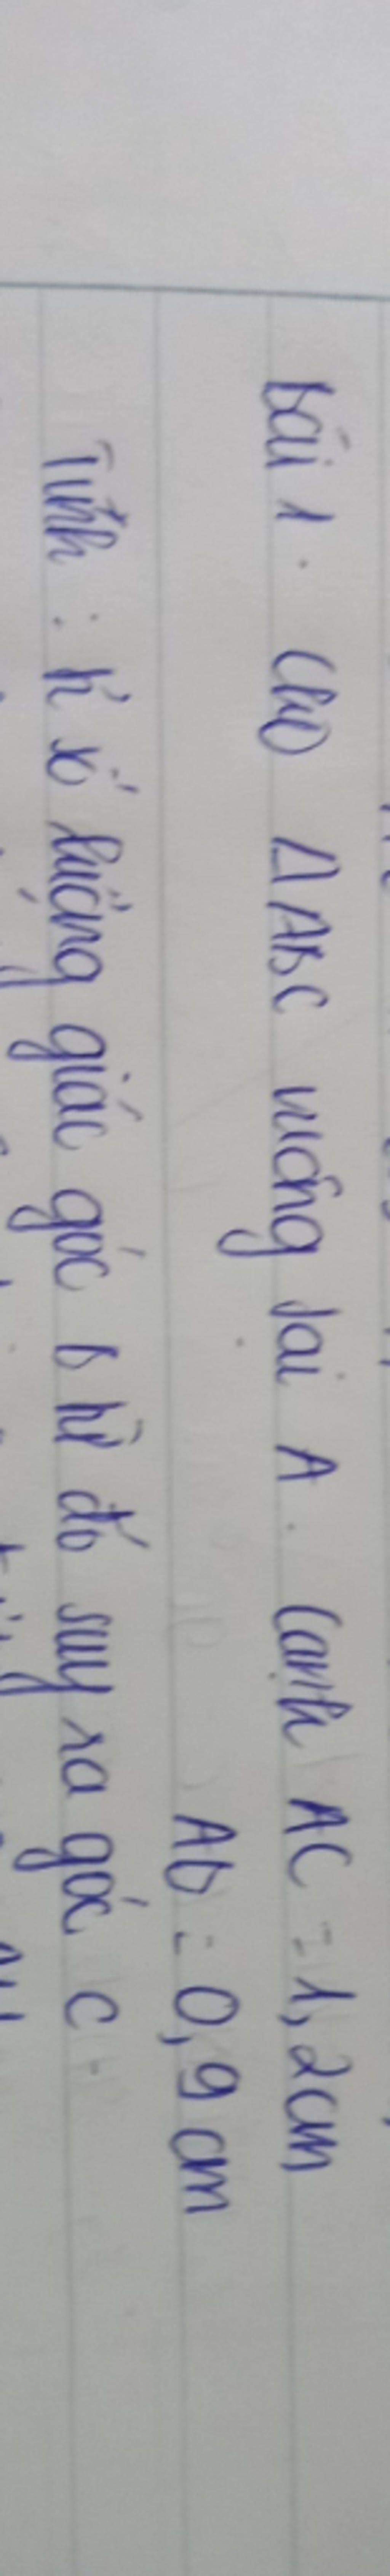 Bài 1. Cho ΔABC vuông tại A. Cạnh AC = 1,2cm
AB = 0,9 cm
Tính : tỉ số lượng giác góc B từ đó suy ra góc C.